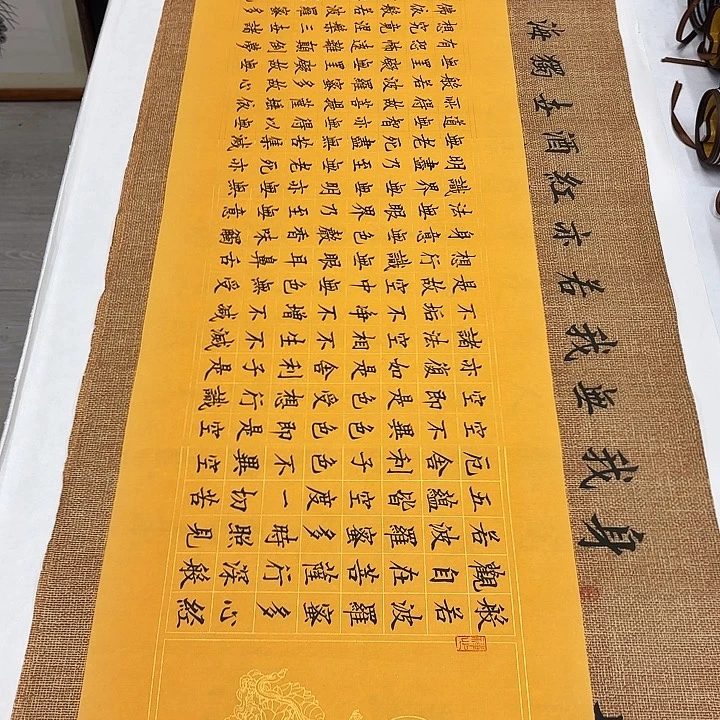 般若波羅蜜多心經
觀自在菩薩行深般
若波羅蜜多時照見
五蘊皆空度一切苦
厄舍利子色不異空
空不異色色即是空
空即是色受想行識
亦復如是舍利子是
諸法空相不生不滅
不垢不淨不增不減
是故空中無色無受
想行識無眼耳鼻舌
身意無色聲香味觸
法無眼界乃至無意
識界無無明亦無無
明盡乃至無老死亦
無老死盡無苦集滅
道無智亦無得以無
所得故菩提薩埵依
般若波羅蜜多故心
無罣礙無罣礙故無
有恐怖遠離顛倒夢
想究竟涅槃三世諸
佛依般若波羅蜜多
身我無我若亦紅酒去獨海